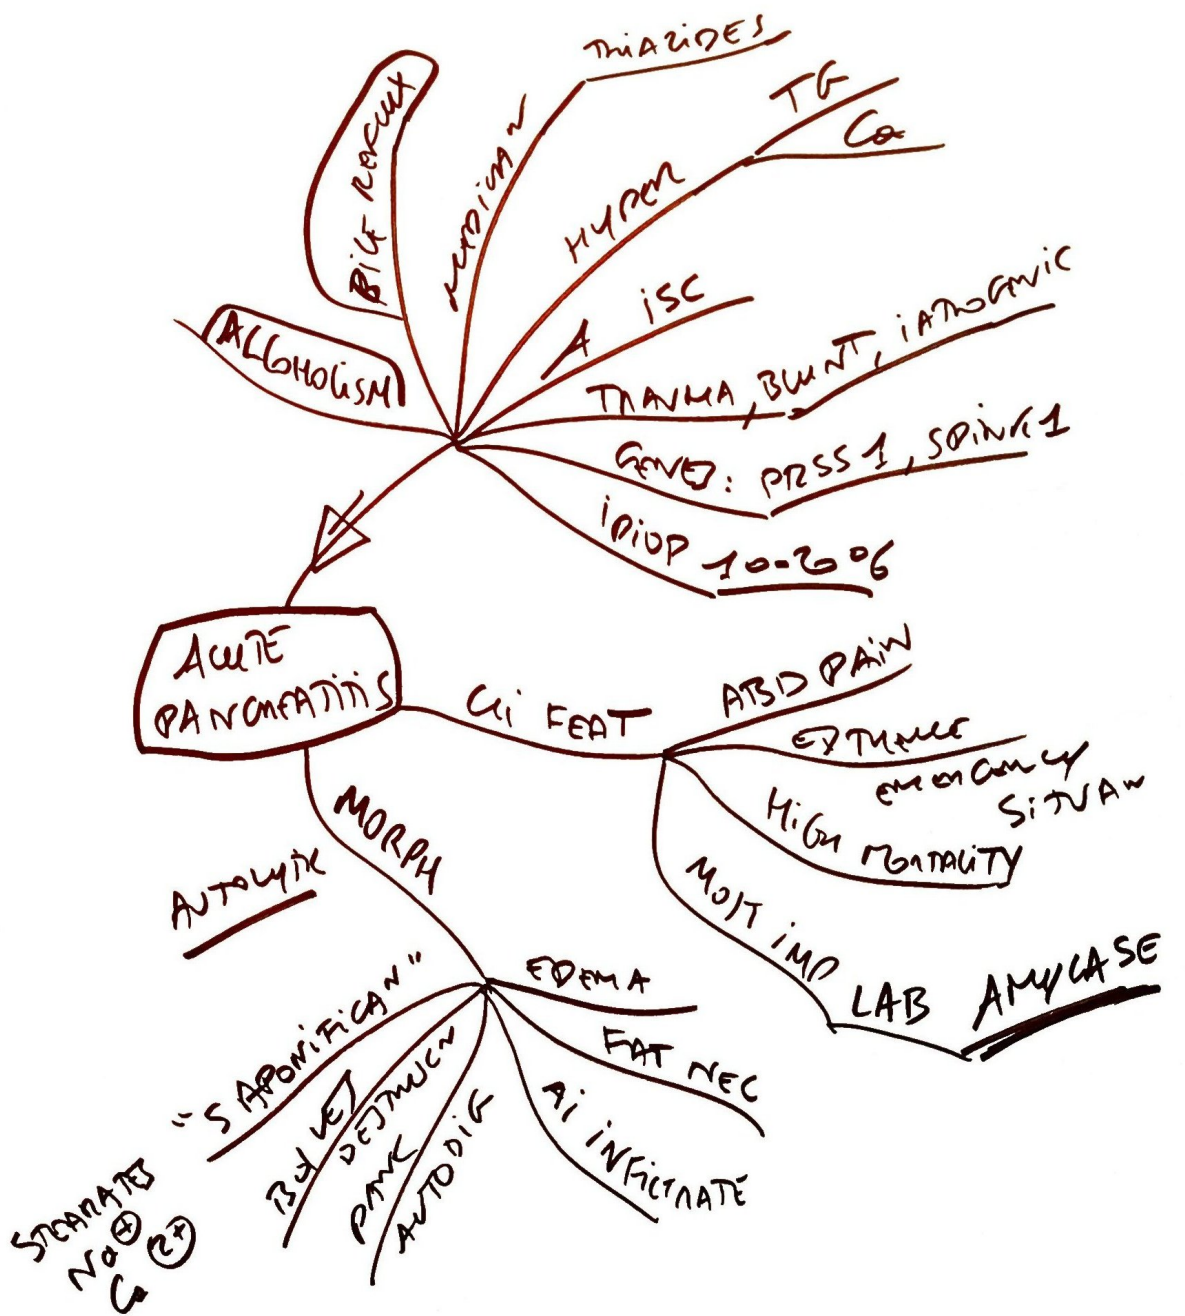 THIAZIDES
TG
Ca
BILE REFLUX
MEDICAN
HYPER
ISC
ALCOHOLISM
TRAUMA, BLUNT, IATROGENIC
GENES: PRSS1, SPINK1
IDIOP 10-20%
ACUTE
PANCREATITIS
Cli FEAT
ABD PAIN
EXTREME
EMERGENCY
SITUAN
HIGH MORTALITY
MOST IMP
LAB AMYLASE
MORPH
AUTOLYTIC
EDEMA
FAT NEC
AI INFILTRATE
PANC
AUTODIG
BLD VES
DESTRUCN
"SAPONIFICAN"
STEARATES
Na +
Ca 2+